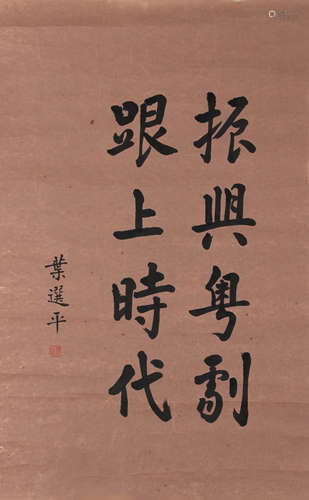 振興粵劇
跟上時代
葉選平